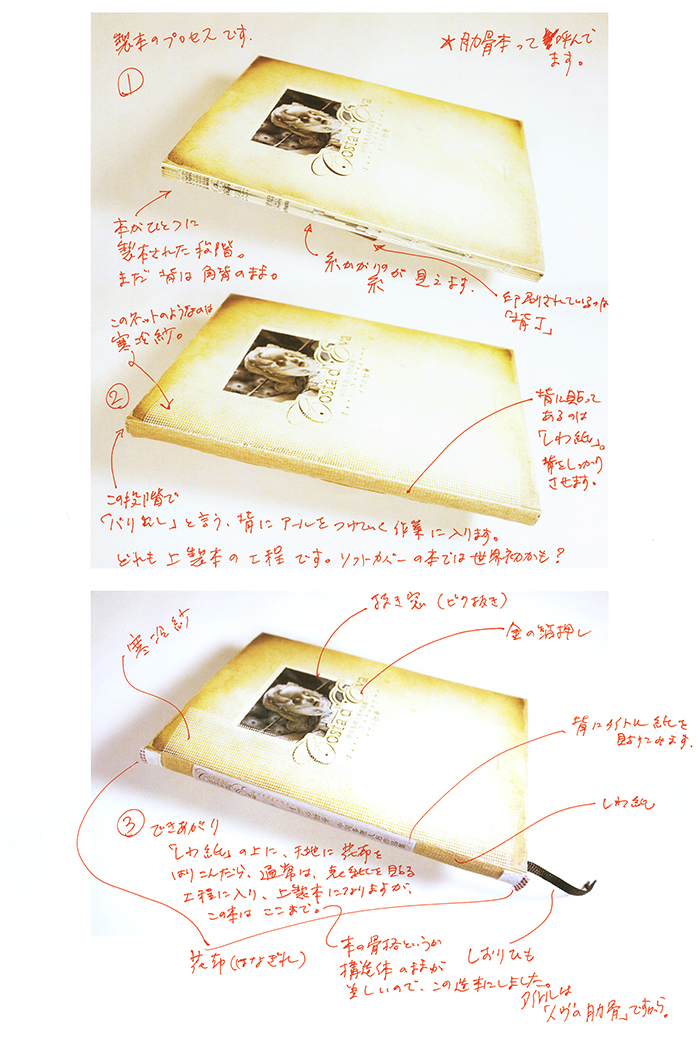 製本のプロセスです.
＊肋骨本って呼んで
ます。
①
Costa d'Eva
本がひとつに
製本された段階。
まだ背は角背のまま。
糸かがりの糸が見えます.
印刷されているのは
「背丁」
このネットのようなのは
寒冷紗。
②
Costa d'Eva
背に貼って
あるのは
「しわ紙」。
背をしっかり
させます。
この段階で
「バリ出し」と言う、背にアールをつけていく作業に入ります。
どれも上製本の工程です。ソフトカバーの本では世界初かも？
寒冷紗
抜き窓（ビク抜き）
金の箔押し
Costa d'Eva
背にタイトル紙を
貼りこみます.
しわ紙
③ できあがり
「しわ紙」の上に、天地に花布を
はりこんだら、通常は、表紙を貼る
工程に入り、上製本になりますが、
この本はここまで。
花布（はなぎれ）
本の骨格というか
構造体のままが
美しいので、この造本にしました。
しおりひも
タイトルは
「イヴの肋骨」ですから。